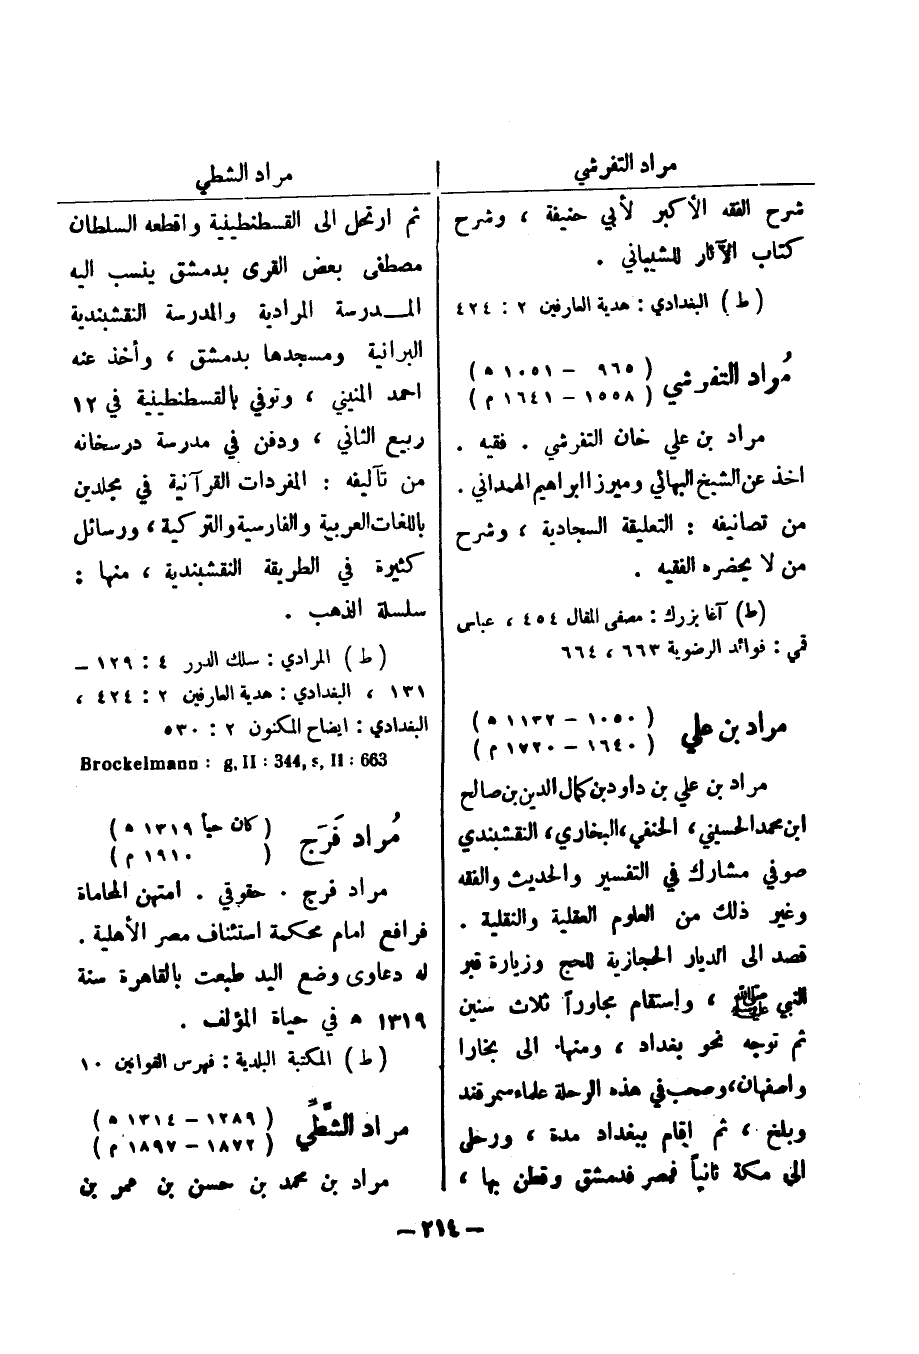 مراد التفرشي
مراد الشطي
شرح الفقه الأكبر لأبي حنيفة ، وشرح
كتاب الآثار للشيباني .
( ط ) البغدادي : هدية العارفين ٢ : ٤٢٤
مُراد التفرشي ( ٩٦٥ – ١٠٥١ ه )
( ١٥٥٨ – ١٦٤١ م )
مراد بن علي خان التفرشي . فقيه .
اخذ عن الشيخ البهائي وميرزا ابراهيم الهمداني .
من تصانيفه : التعليقة السجادية ، وشرح
من لا يحضره الفقيه .
(ط) آغا بزرك : مصفى المقال ٤٥٤ ، عباس
قمي : فوائد الرضوية ٦٦٣ ، ٦٦٤
مراد بن علي ( ١٠٥٠ – ١١٣٢ ه )
( ١٦٤٠ – ١٧٢٠ م )
مراد بن علي بن داود بن كمال الدين بن صالح
ابن محمد الحسيني ، الحنفي ، البخاري ، النقشبندي
صوفي مشارك في التفسير والحديث والفقه
وغير ذلك من العلوم العقلية والنقلية .
قصد الى الديار الحجازية للحج وزيارة قبر
النبي ﷺ ، واستقام مجاوراً ثلاث سنين
ثم توجه نحو بغداد ، ومنها الى بخارا
واصفهان ، وصحب في هذه الرحلة علماء سمرقند
وبلخ ، ثم اقام ببغداد مدة ، ورحل
الى مكة ثانياً فمصر فدمشق وقطن بها ،
ثم ارتحل الى القسطنطينية واقطعه السلطان
مصطفى بعض القرى بدمشق ينسب اليه
المـدرسة المرادية والمدرسة النقشبندية
البرانية ومسجدها بدمشق ، وأخذ عنه
احمد المنيني ، وتوفي بالقسطنطينية في ١٢
ربيع الثاني ، ودفن في مدرسة درسخانه
من تآليفه : المفردات القرآنية في مجلدين
باللغات العربية والفارسية والتركية ، ورسائل
كثيرة في الطريقة النقشبندية ، منها :
سلسلة الذهب .
( ط ) المرادي : سلك الدرر ٤ : ١٢٩ –
١٣١ ، البغدادي : هدية العارفين ٢ : ٤٢٤ ،
البغدادي : ايضاح المكنون ٢ : ٥٣٠
Brockelmann : g, II : 344, s, II : 663
مُراد فَرَج ( كان حياً ١٣١٩ ه )
( ١٩١٠ م )
مراد فرج . حقوقي . امتهن المحاماة
فرافع امام محكمة استئناف مصر الأهلية .
له دعاوى وضع اليد طبعت بالقاهرة سنة
١٣١٩ ه في حياة المؤلف .
( ط ) المكتبة البلدية : فهرس القوانين ١٠
مراد الشَّطِّي ( ١٢٨٩ – ١٣١٤ ه )
( ١٨٧٢ – ١٨٩٧ م )
مراد بن محمد بن حسن بن عمر بن
– ٢١٤ –